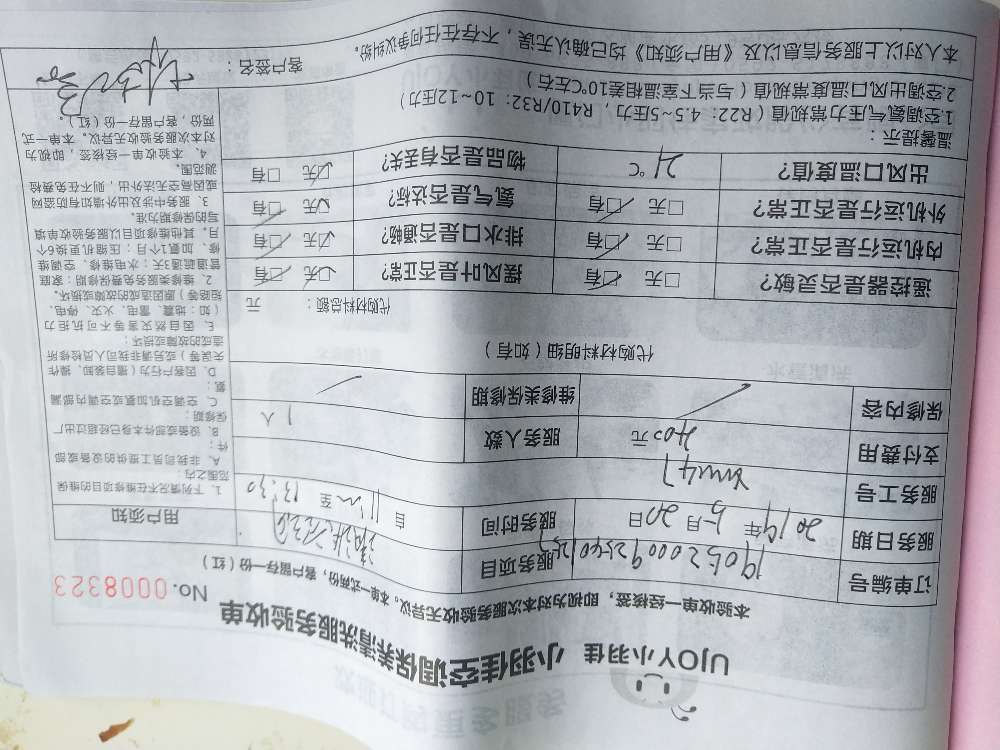 UJOY小羽佳 小羽佳空调保养清洗服务验收单
本验收单一经核签，即视为对本次服务验收无异议。本单一式两份，客户留存一份（红）
No. 0008323
订单编号
服务项目
用户须知
服务日期 2019年 5月 20日
服务时间 自 至 13:30
服务工号
支付费用 400元
服务人数 1人
保修内容
维修类保修期
代购材料明细（如有）
代购材料总额： 元
遥控器是否灵敏？ □无 □有
摆风叶片是否正常？ □无 □有
内机运行是否正常？ □无 □有
排水口是否通畅？ □无 □有
外机运行是否正常？ □无 □有
氨气是否达标？ □无 □有
出风口温度值？ 21℃
物品是否有丢失？ □无 □有
温馨提示：
1.空调氨气压力常规值（R22：4.5~5压力，R410/R32：10~12压力）
2.空调出风口温度常规值（与当下室温相差10℃左右）
1、下列情况不在维修项目的维保
范围之内：
A、非我司员工提供的设备或部
件；
B、设备或部件本身已经超过出厂
保修期；
C、空调空机如氨或空调内部漏
氨；
D、因客户行为（擅自装卸、操作
误关等）或另请非我司人员检修所
造成的故障或损坏；
E、因自然灾害等不可抗拒力
（如：地震、雷电、火灾、停电、
短路等）原因造成的故障或损坏。
2、维修类服务免费保修期：家庭
管道疏通7天；水电维修、空调维
修、加氨1个月；压缩机更换6个
月，其他维修项目以服务验收单填
写的保修期为准。
3、服务中涉及出外墙如有防盗网
或因高空无法外出，则不在免费检
测范围。
4、本验收单一经核签，即视为
对本次服务验收无异议。本单一式
两份，客户留存一份（红）。
本人对以上服务信息以及《用户须知》均已确认无误，不存在任何争议纠纷。
客户签名：